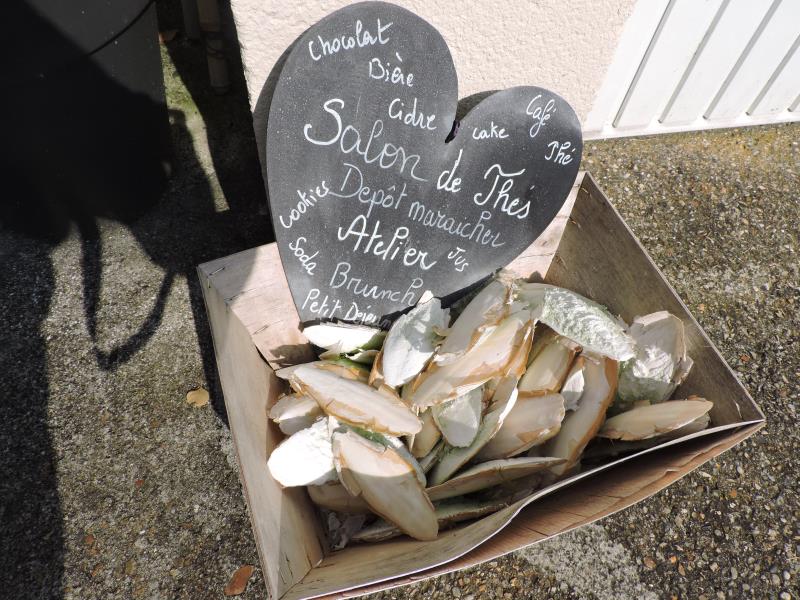 Chocolat
Bière
Cidre
cake
Café
Thé
Salon de Thés
cookies
Depôt maraicher
Atelier
Jus
Soda
Brunch
Petit Dejeun